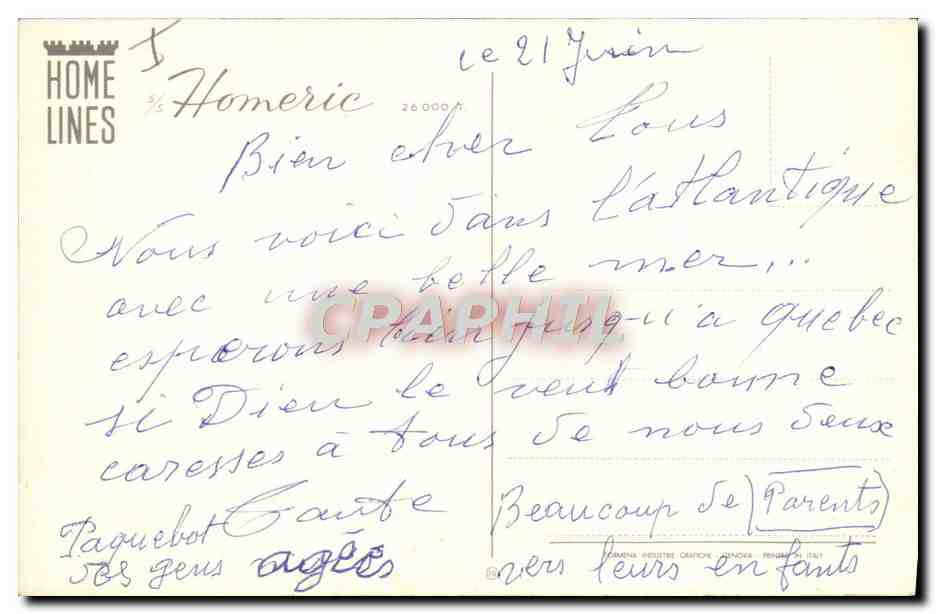 HOME
LINES
I
S/S Homeric
26000 T.
le 21 Juin
Bien cher Tous
Nous voici dans l'atlantique
avec une belle mer,..
esperons bien jusqu'a quebec
si Dieu le veut bonne
caresses à tous de nous deux
Tante
Paquebot
des gens agées
Beaucoup de (Parents)
vers leurs enfants
FORMENA INDUSTRIE GRAFICHE - GENOVA - PRINTED IN ITALY
CPARPHIL